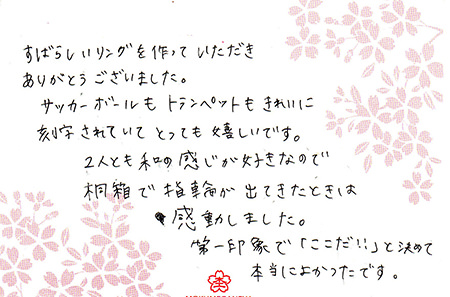 すばらしいリングを作っていただき
ありがとうございました。
サッカーボールもトランペットもきれいに
刻字されていてとっても嬉しいです。
2人とも和の感じが好きなので
桐箱で指輪が出てきたときは
感動しました。
第一印象で「ここだ!!」と決めて
本当によかったです。